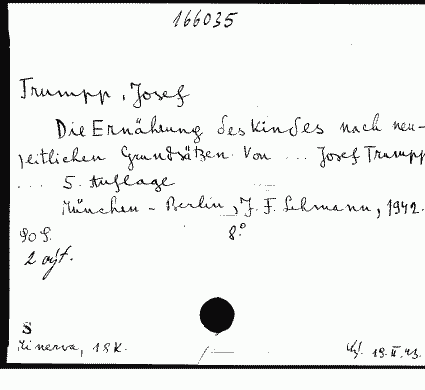 166035
Trumpp, Josef
Die Ernährung des Kindes nach neu-
zeitlichen Grundsätzen. Von ... Josef Trumpp
... 5. Auflage
München - Berlin, J. F. Lehmann, 1942.
90 S. 8°
S
Minerva, 18K. 19.II.43.